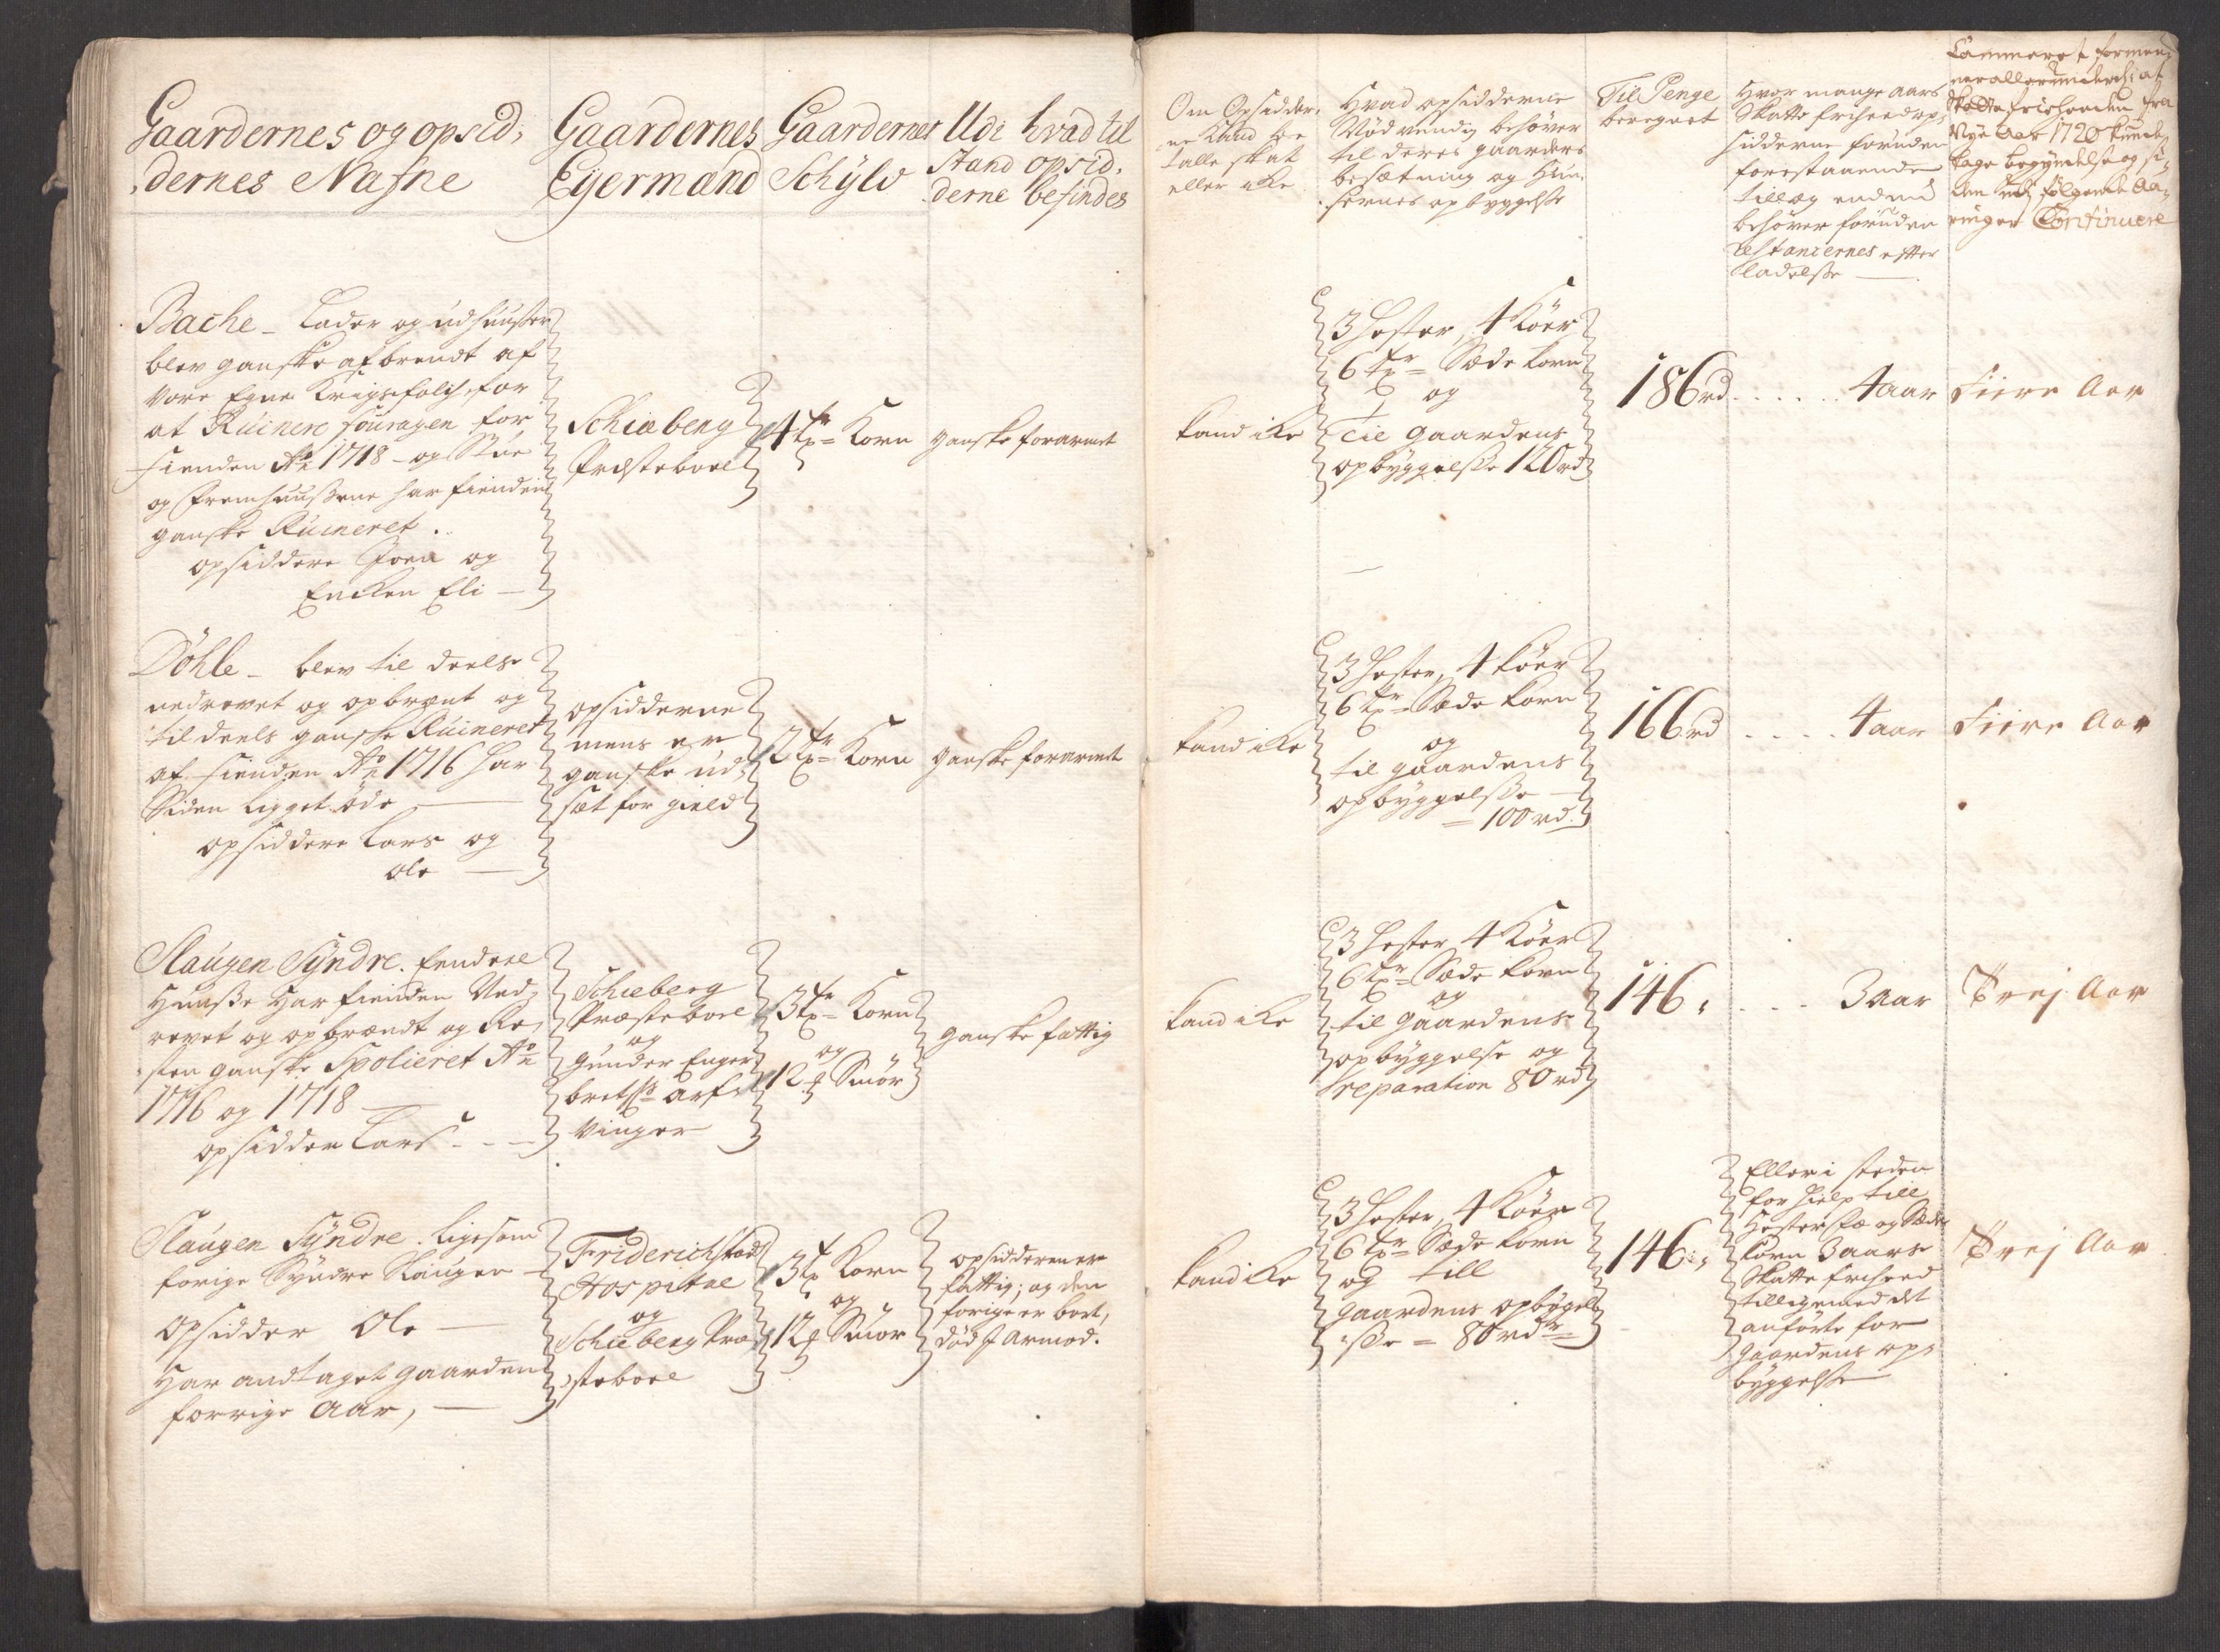 Gaardernes og opsid,
dernes Nafne
Gaardernes
Eÿermænd
Gaardernes
Schÿlv
Udi hvad til
Stand opsid,
derne befindes
Om Opsidder,
ne kand be
talle skat
eller icke
Hvad opsidderne
Nødvendig behøver
til deres gaarders
besætning og Huu,
sernes opbyggelse
Til Penge
beregnet
Hvor mange aars
Skatte frihed op,
sidderne foruden
forestaaende
tillæg endnu
behøver foruden
restancernes efter
ladelse
Cammeret formee,
ner allerunderd: at
Skatte frieheeden fra
Nye Aar 1720 kunde
tage begyndelse og si,
den udj følgende Aa,
ringer Continuere
Bache - Lader og udhuusser
blev ganske afbrendt af
vore Egne Krigsfolch, for
at Ruinere fouragen for
fienden Ao 1718 - og Stue
og Fremhuussene har fienden
ganske Ruineret.
opsiddere Joen og
Encken Eli
Schieberg
Præstebole
4 tr Korn
ganske forarmet
kand icke
3 Hester, 4 Køer
6 tr Sæde korn
og
Til gaardens
opbyggelsse 120 rd
186 rd
4 aar
Fiire Aar
Döhle - blev til deels
nedrevet og opbrænt og
til deels ganske Ruineret
af fienden Ao 1716 har
Siden ligget øde
opsiddere Lars og
Ole
opsidderne
mens er
ganske ud,
sat for gield
2 tr Korn
ganske forarmet
kand icke
3 Hester, 4 køer
6 tr Sæde korn
og
til gaardens
opbyggelsse
= 100 rd
166 rd
4 aar
Fiire Aar
Slaugen Syndre. Eendeel
Huusse Har fienden Ned,
revet og opbrændt og Re,
sten ganske Spolieret Ao
1716 og 1718
opsidder Lars
Schieberg
Præstebole
og
Gunder Enger
bretss. arf,
vinger
3 tr Korn
og
12 Smør
ganske fattig
kand icke
3 Hester, 4 Køer
6 tr Sæde korn
og
til gaardens
opbyggelse og
reparation 80 rd
146,
3 aar
Trej Aar
Slaugen Syndre. Ligesom
forige Syndre Slaugen
opsidder Ole
Har andtaget gaarden
forrige Aar,
Friderichstad
Hospital
og
Schieberg Præ,
stebole
3 t Korn
og
12 Smør
opsidderen er
fattig; og den
forige er bort,
død J Armod.
kand icke
3 Hester, 4 Køer
6 tr Sæde korn
og till
gaardens opbygel
sse = 80 rdr
146:,
Eller i steden
for hielp till
Hester fæ og Sæde
korn 3 aars
Skatte frihed
tilligemed det
anførte for
gaardens op,
byggelsse
Trej Aar